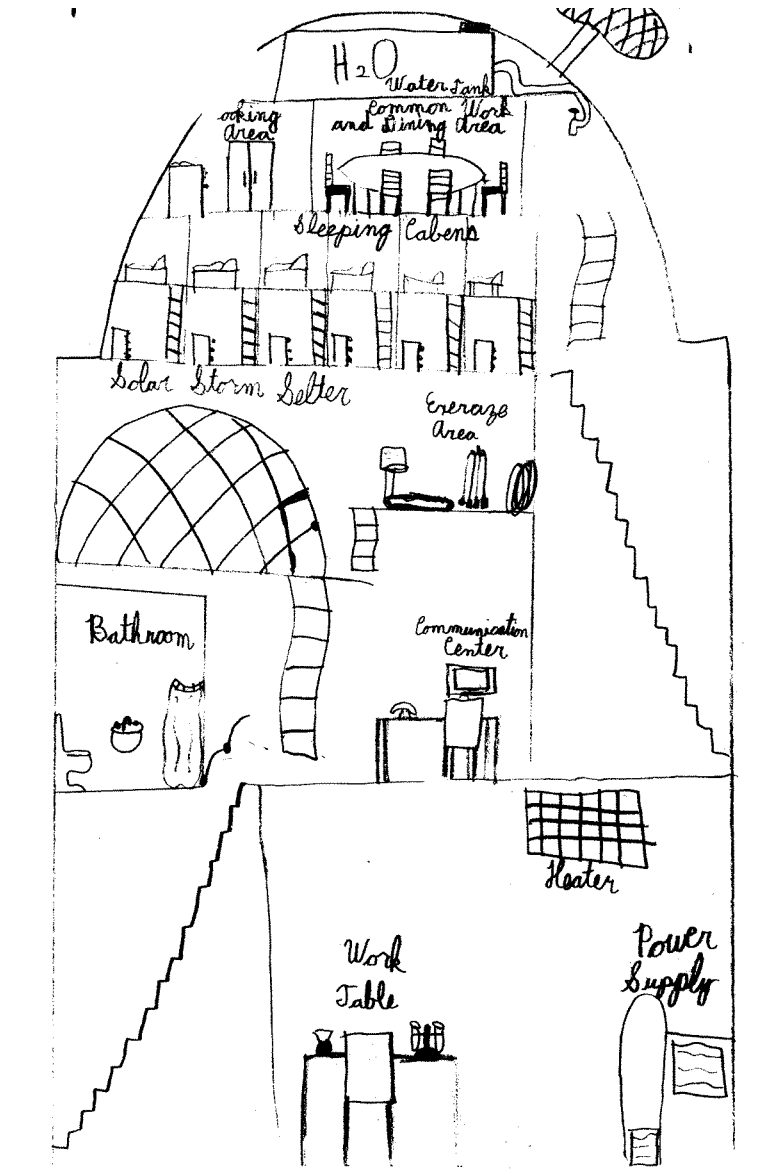 H₂O
Water Tank
ooking
Area
Common Work
and Dining Area
Sleeping Cabens
Solar Storm Selter
Exeraze
Area
Bathroom
Communication
Center
Heater
Work
Table
Power
Supply